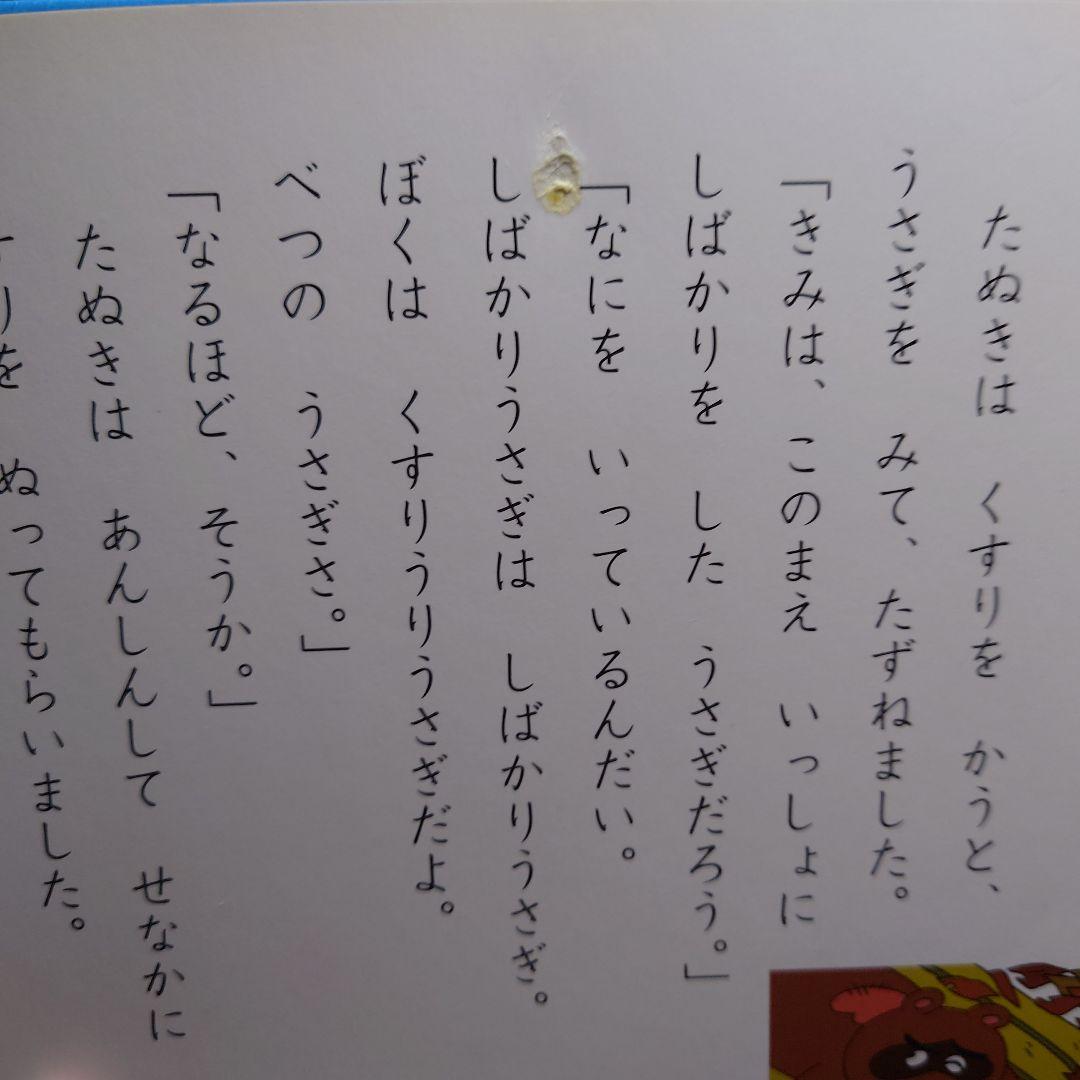 たぬきは　くすりを　かうと、
うさぎを　みて、たずねました。
「きみは、このまえ　いっしょに
しばかりを　した　うさぎだろう。」
「なにを　いっているんだい。
しばかりうさぎは　しばかりうさぎ。
ぼくは　くすりうりうさぎだよ。
べつの　うさぎさ。」
「なるほど、そうか。」
たぬきは　あんしんして　せなかに
りを　ぬってもらいました。